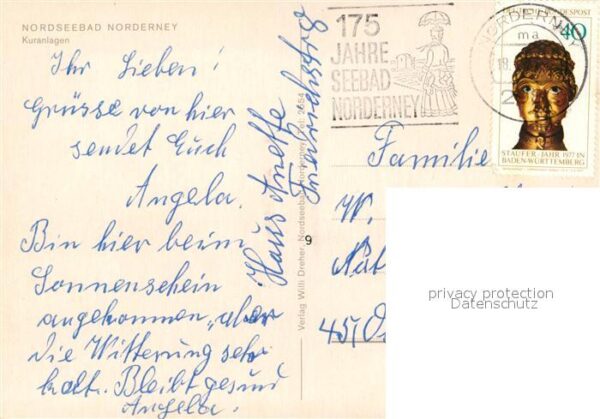 NORDSEEBAD NORDERNEY
Kuranlagen
Ihr Lieben!
Grüsse von hier
sendet Euch
Angela.
Bin hier beim
Sonnenschein
angekommen, aber
die Witterung sehr
kalt. Bleibt gesund
Angela.
Haus Anette
Verlag Willi Dreher, Nordseebad Norderney
9
175
JAHRE
SEEBAD
NORDERNEY
NORDERNEY
ma
18.
2
DEUTSCHE BUNDESPOST
40
STAUFER-JAHR 1977 IN
BADEN-WÜRTTEMBERG
Familie
W.
45,O
privacy protection
Datenschutz